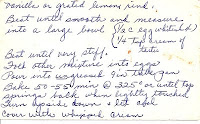 vanilla or grated lemon rind.
Beat until smooth and measure
into a large bowl 1/2 c egg whites
1/4 tsp cream of tartar
Beat until very stiff.
Fold other mixture into eggs
Pour into ungreased 9 in tube pan
Bake 50-55 min @ 325° or until top
springs back when lightly touched
Turn upside down & let cool
Cover with whipped cream